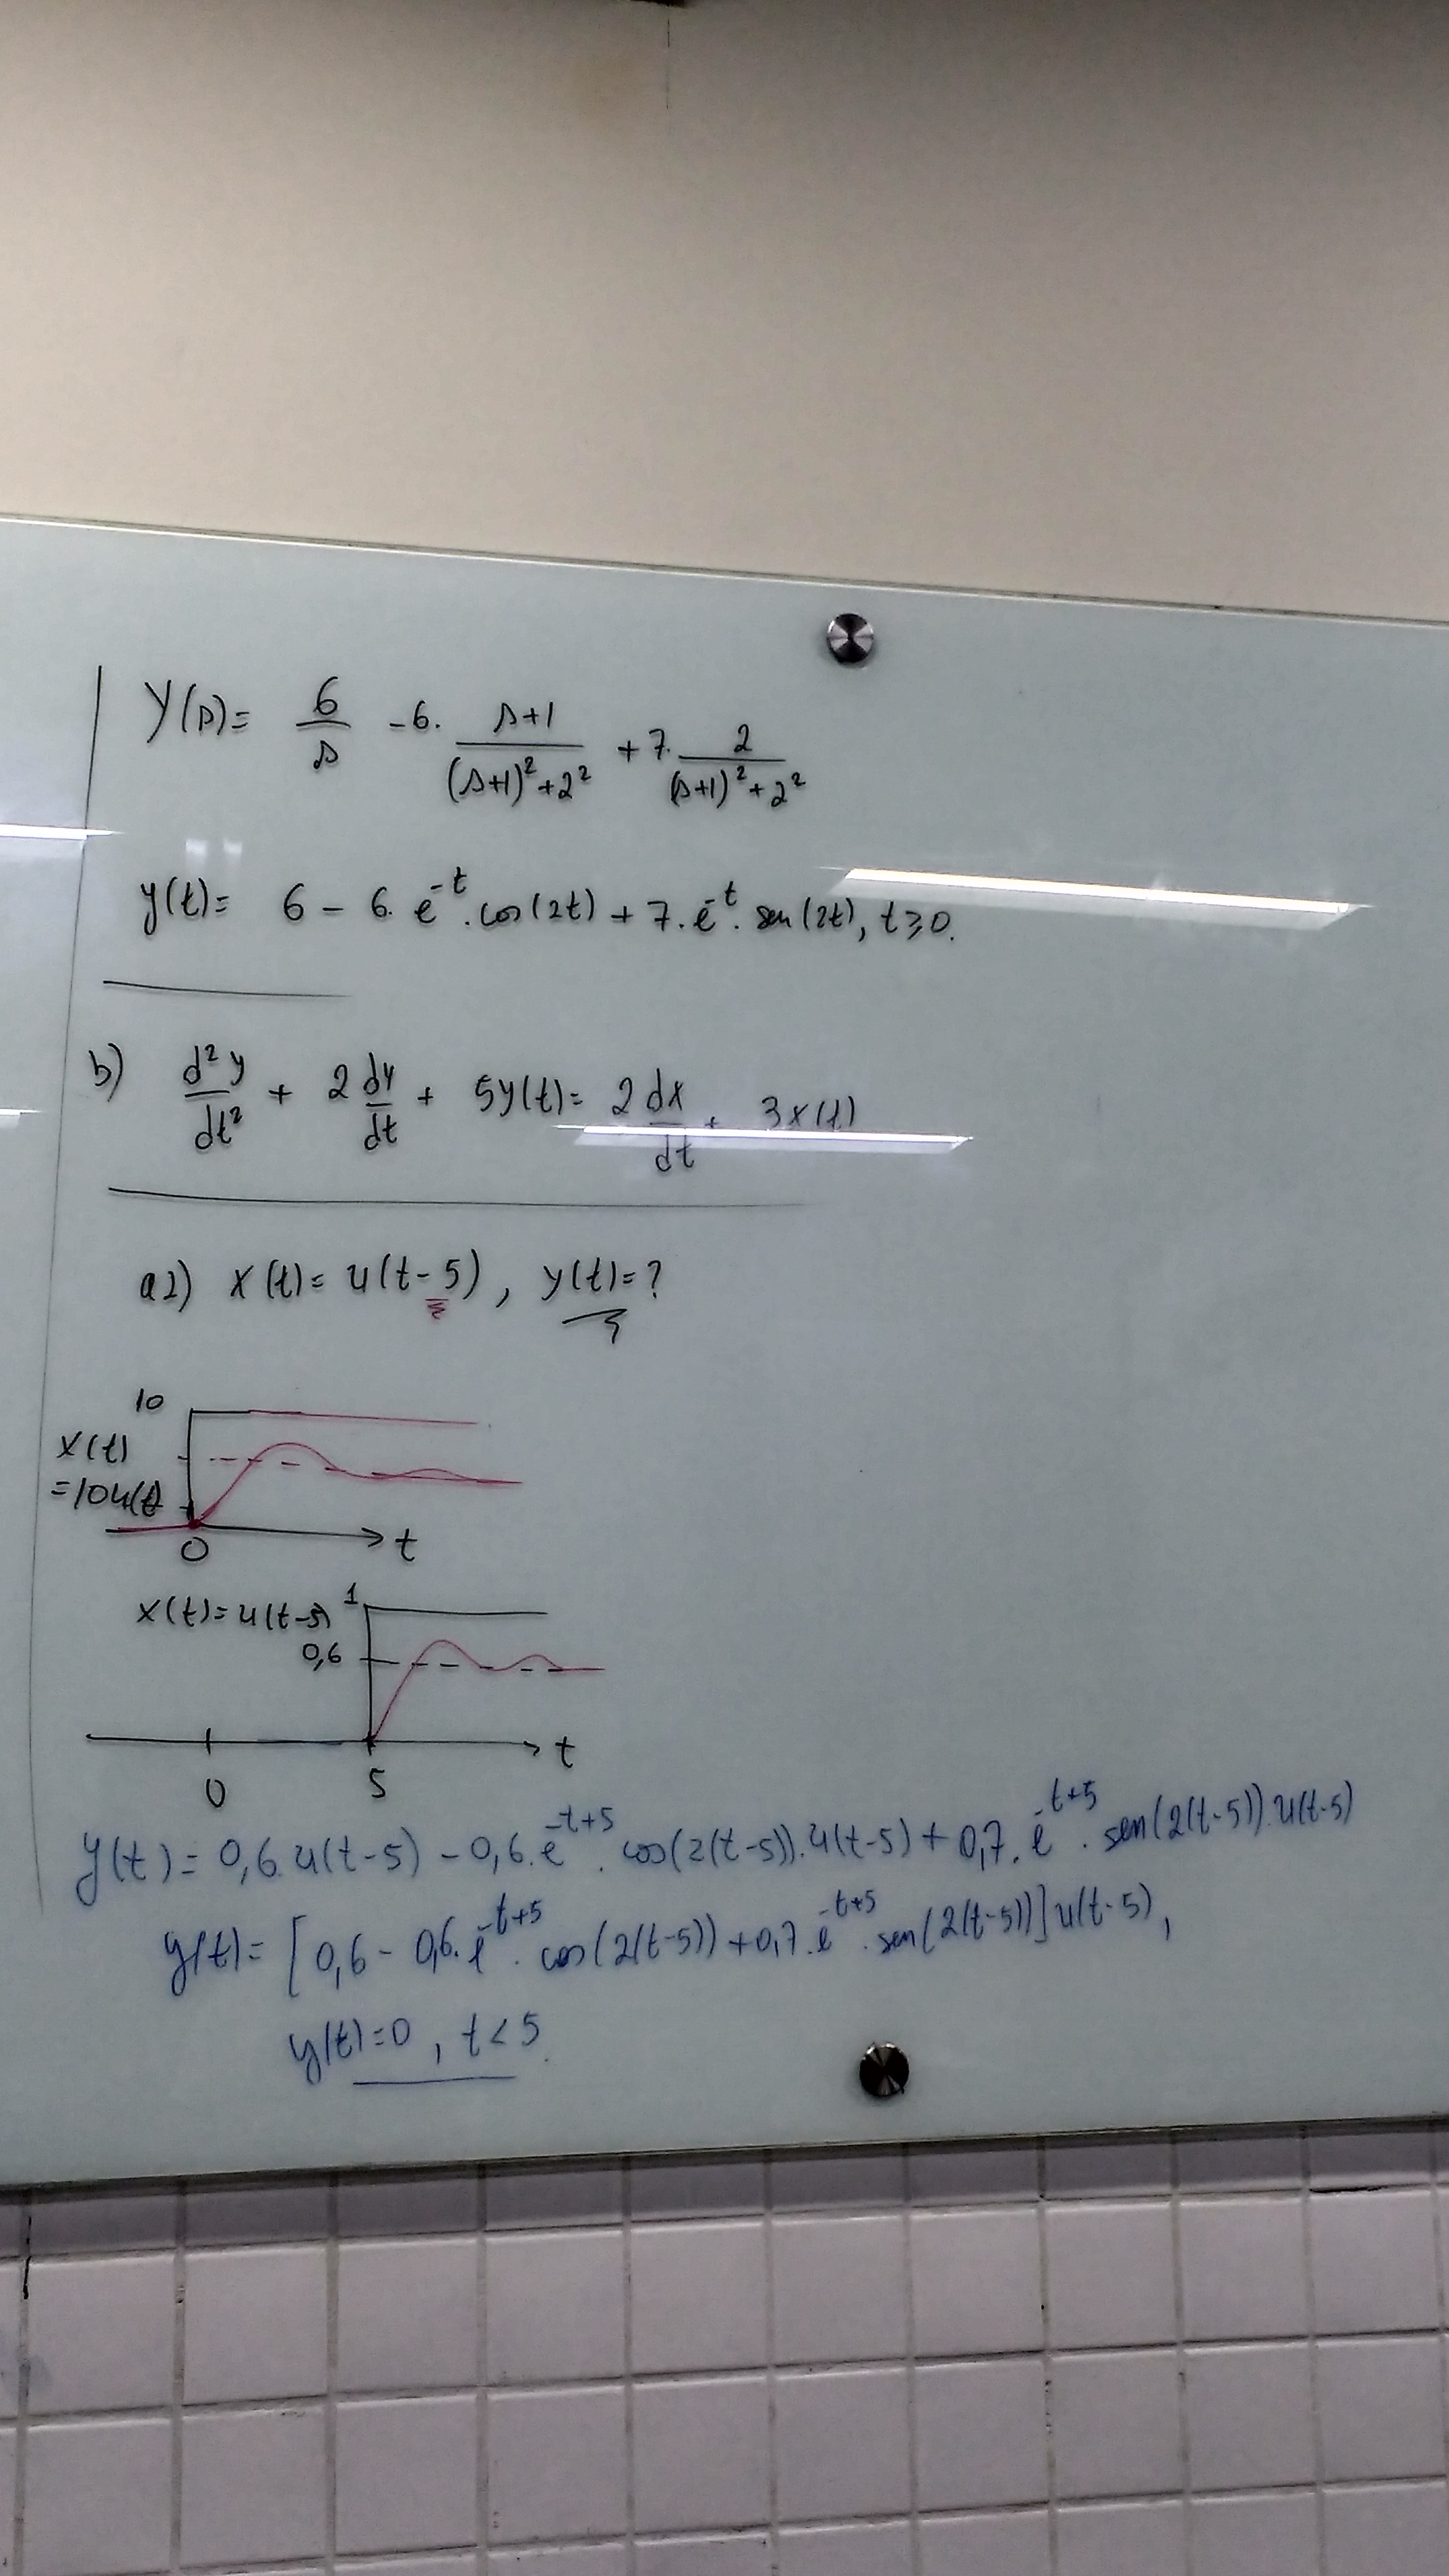 Y(s) = 6/s - 6. (s+1)/((s+1)²+2²) + 7. 2/((s+1)²+2²)
y(t) = 6 - 6. e^-t . cos(2t) + 7. e^-t . sen(2t), t ≥ 0.
b) d²y/dt² + 2 dy/dt + 5y(t) = 2 dx/dt + 3x(t)
a2) x(t) = u(t-5), y(t) = ?
10
x(t)
=10u(t)
0
t
x(t) = u(t-5)
1
0,6
0
5
t
y(t) = 0,6.u(t-5) - 0,6.e^-t+5 . cos(2(t-5)).u(t-5) + 0,7. e^-t+5 . sen(2(t-5)).u(t-5)
y(t) = [0,6 - 0,6.e^-t+5 . cos(2(t-5)) + 0,7.e^-t+5 . sen(2(t-5))]u(t-5),
y(t) = 0, t < 5.